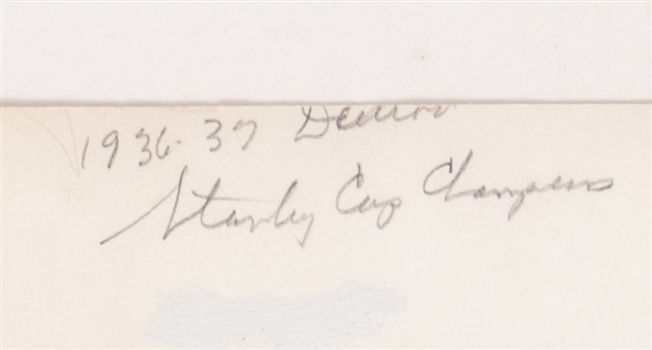 1936-37 Detroit
Stanley Cup Champions